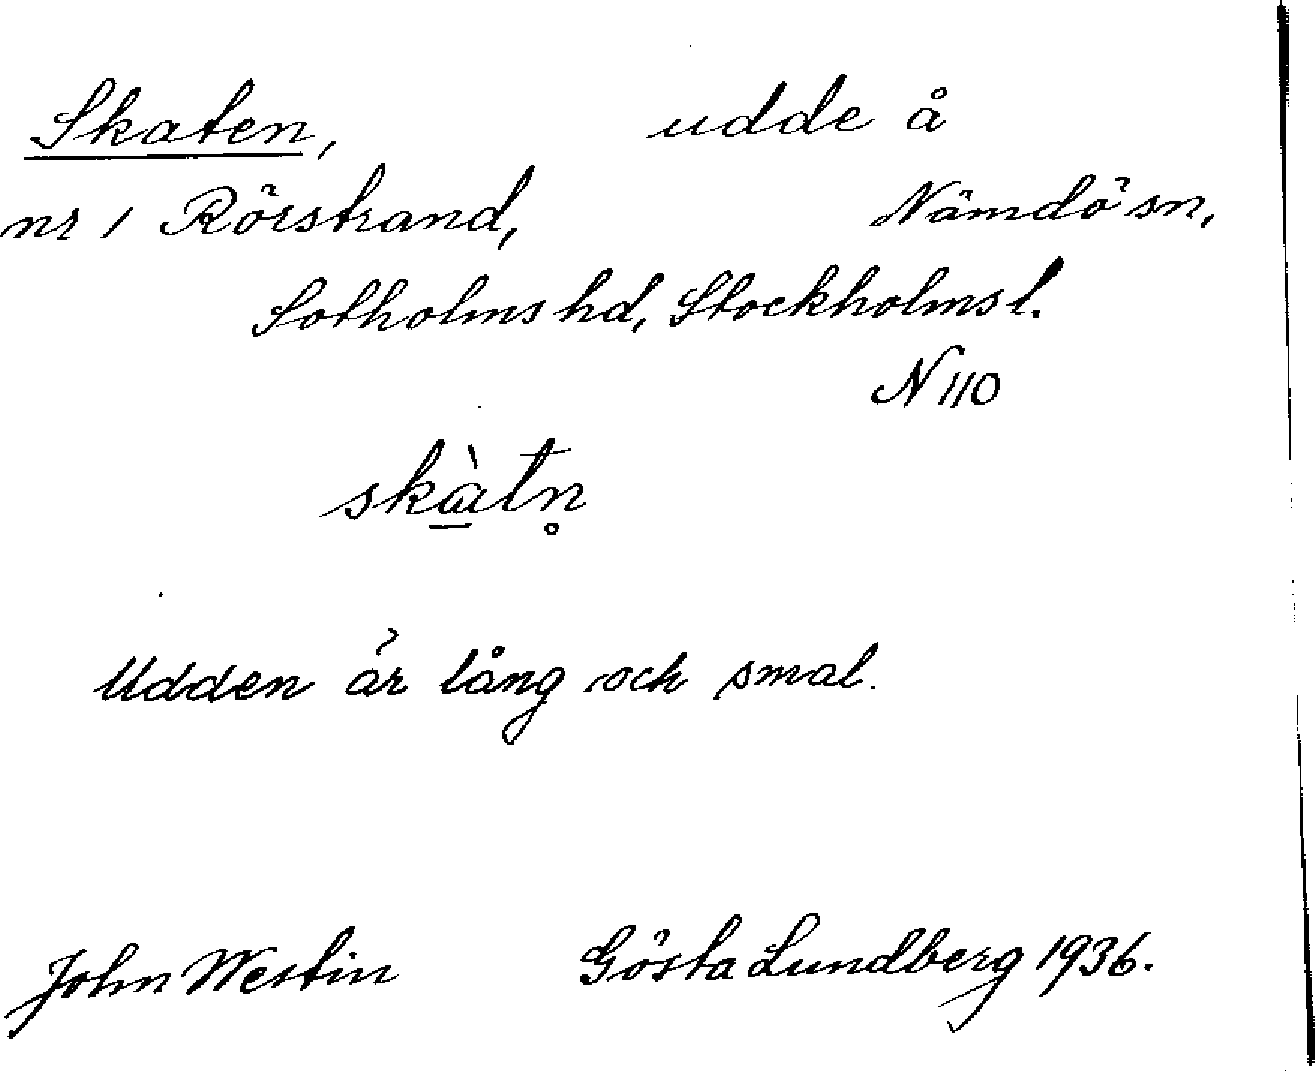 Skaten, udde å
nr 1 Rörstrand, Nämdö sn,
Sotholms hd, Stockholms l.
N 110
skàtn̥
Udden är lång och smal.
John Westin Gösta Lundberg 1936.